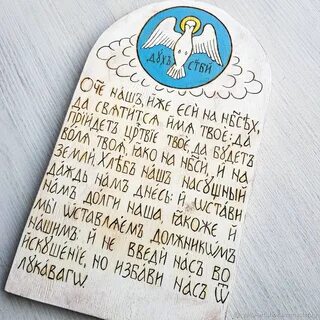 дꙋхъ ст҃ый
Ѻч҃е нашъ, и҆́же є҆сѝ на нб҃сѣ́хъ,
да ст҃и́тсѧ и҆́мѧ твоѐ: да
прїи́детъ цр҃твїе твоѐ, да бꙋ́детъ
во́лѧ твоѧ̀, ꙗ҆́кѡ на нб҃сѝ, и҆ на
землѝ. хлѣ́бъ на́шъ насꙋ́щный
да́ждь на́мъ дне́сь: и҆ ѡ҆ста́ви
на́мъ до́лги на́ша, ꙗ҆́коже и҆
мы̀ ѡ҆ставлѧ́емъ должникѡ́мъ
на́шимъ: и҆ не введѝ на́съ во
и҆скꙋше́нїе, но и҆зба́ви на́съ ѿ
лꙋка́вагѡ